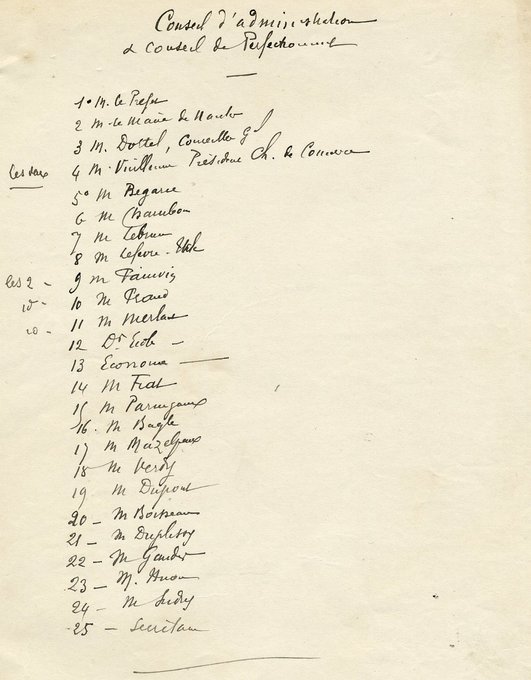 Conseil d'administration
& Conseil de Perfectionnement
1° M. le Préfet
2 M. le Maire de Nantes
3 M. Dottel, Conseiller Gl
les deux 4 M. Président Ch. de Commerce
5° M Begarie
6 M Chambon
7 M Lebrun
8 M Lefevre-Utile
les 2 - 9 M
id - 10 M
id - 11 M Merlant
12 Dr Ecole -
13 Econome -
14 M Fiat
15 M
16. M Bugle
17 M
18 M Verdy
19 M Dupont
20 - M Boisseau
21 - M Duplessy
22 - M Gander
23 - M. Huon
24 - M Sudry
25 - Secrétaire